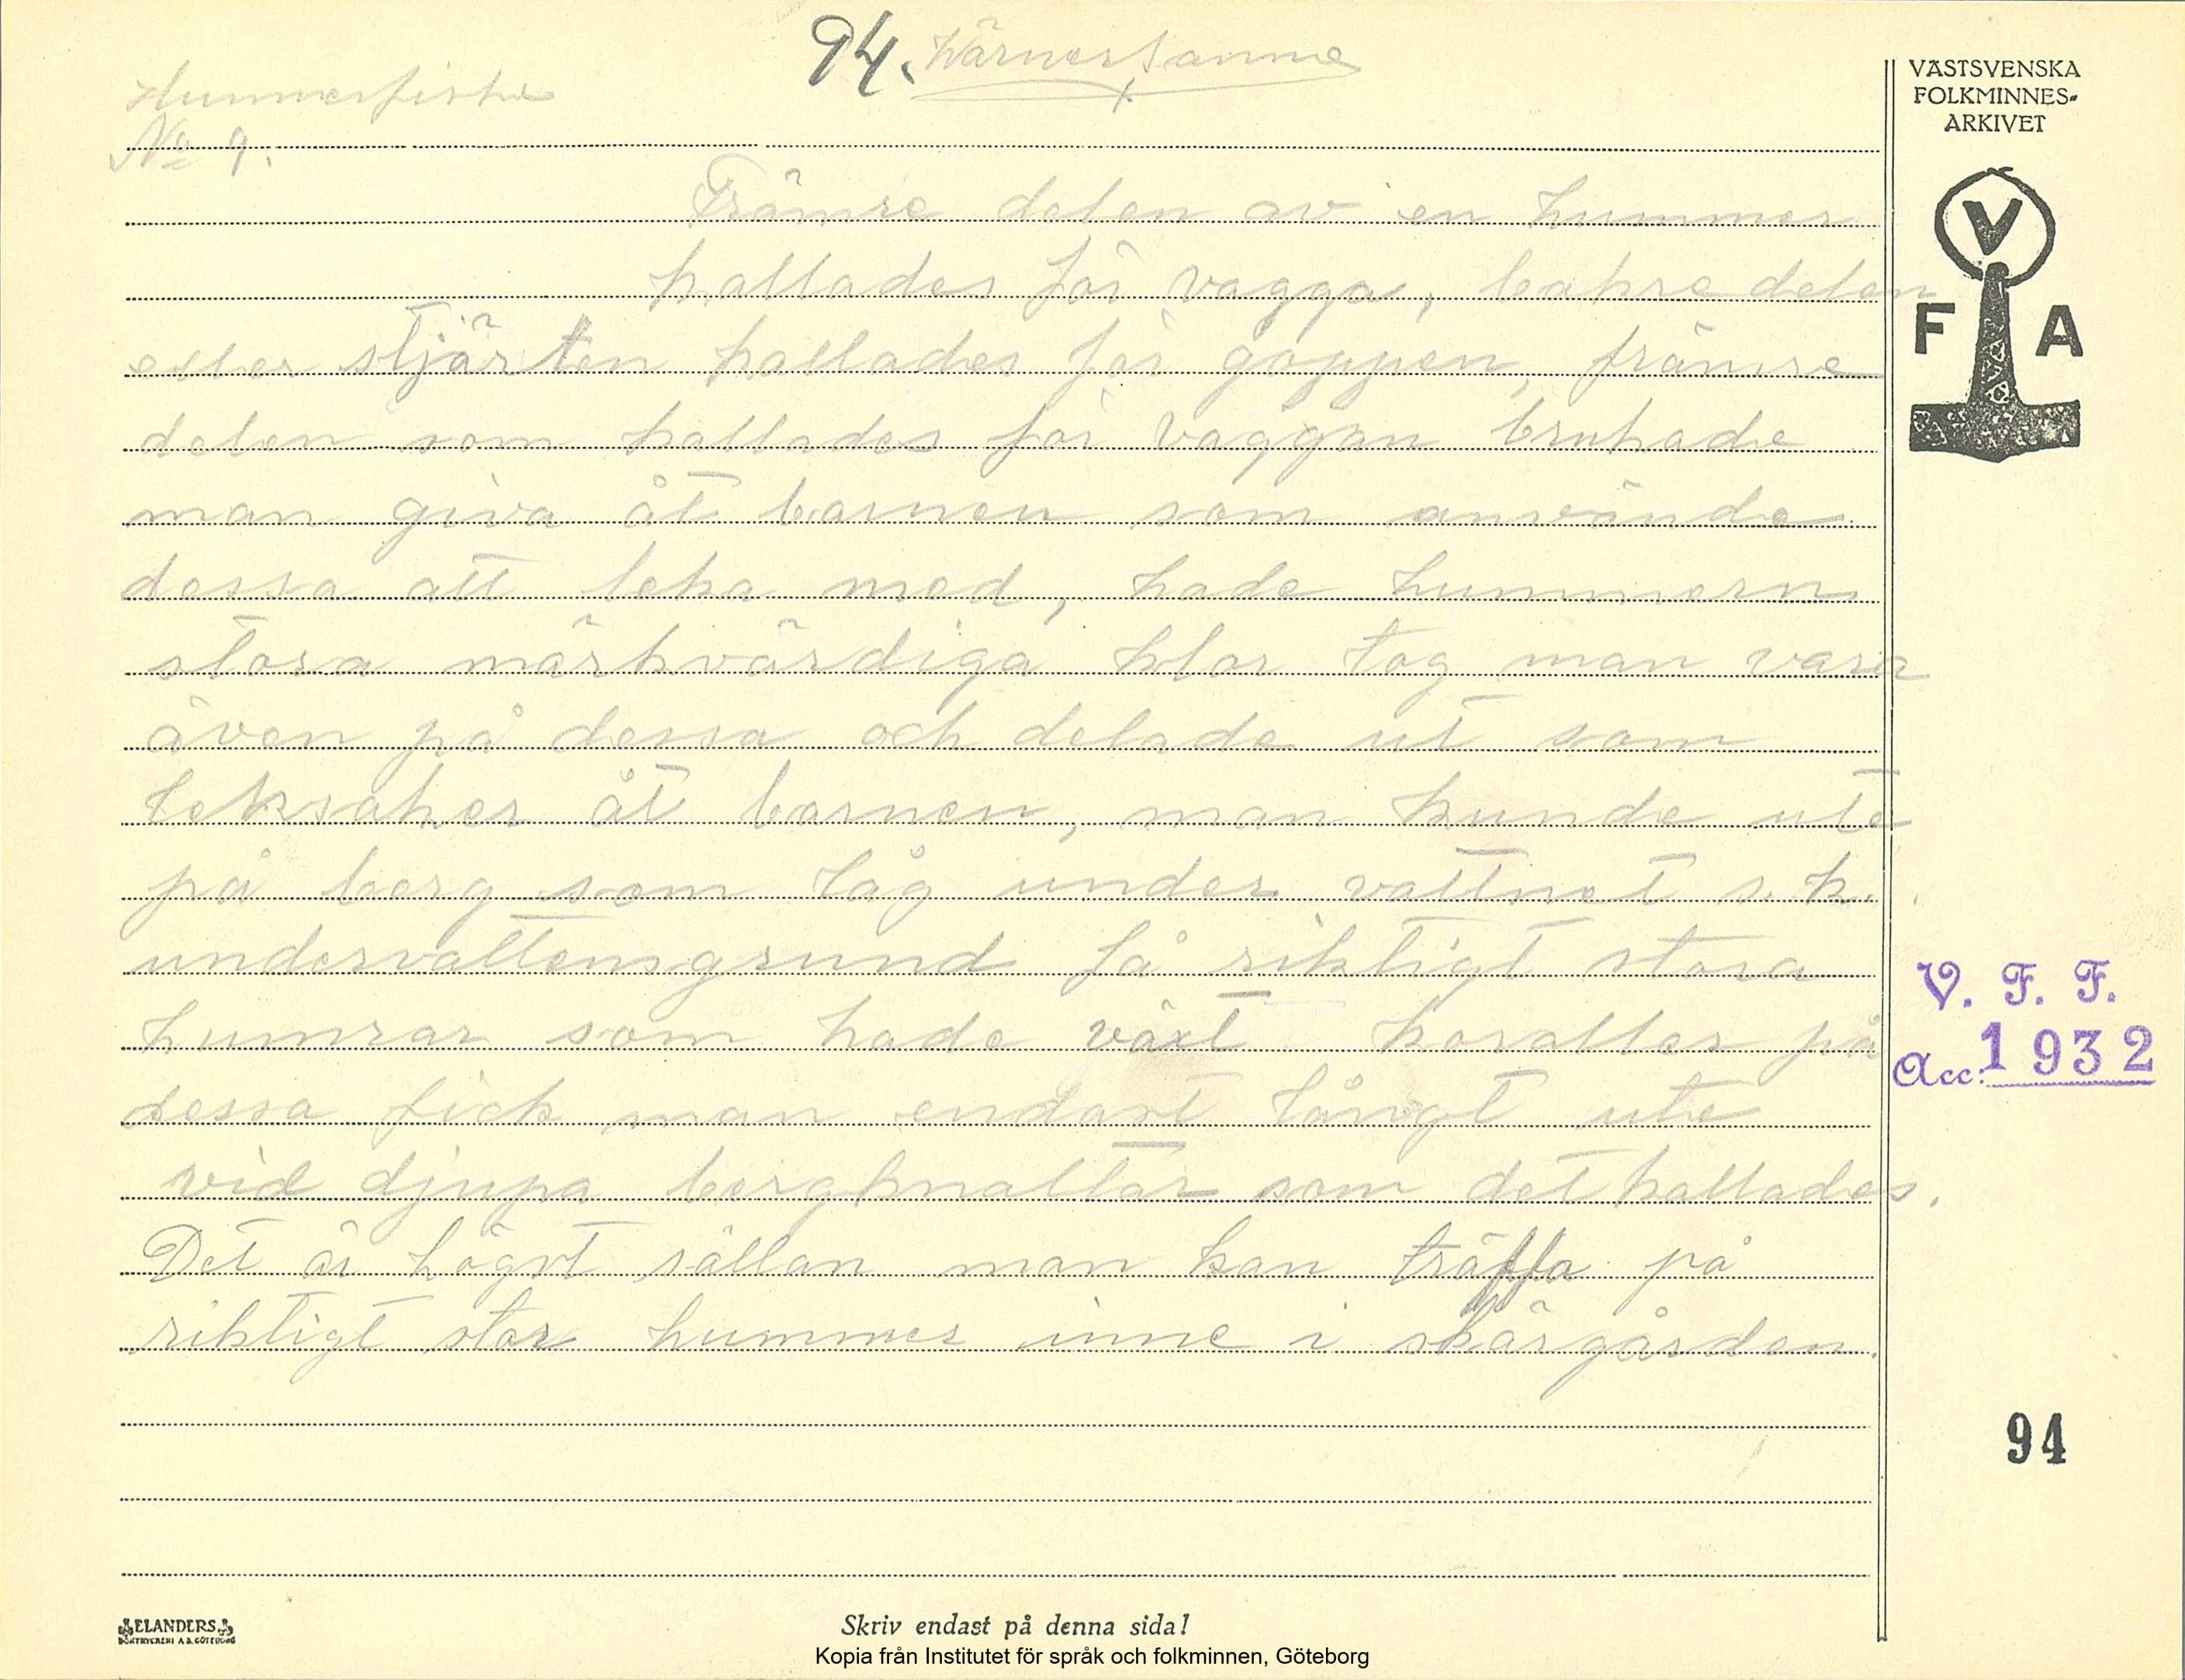 94. Wärnersanne
Hummerfiske
No 9.
VÄSTSVENSKA
FOLKMINNES-
ARKIVET
V
F A
Främre delen av en hummer
kallades för vagga, bakre delen
eller stjärten kallades för gappen, främre
delen som kallades för vaggan brukade
man giva åt barnen som använde
dessa att leka med, hade hummern
stora märkvärdiga klor tog man vara
även på dessa och delade ut som
leksaker åt barnen, man kunde ute
på berg som låg under vattnet s. k.
undervattensgrund få riktigt stora
humrar som hade växt koraller på
dessa fick man endast långt ute
vid djupa bergknallar som det kallades.
Det är högst sällan man kan träffa på
riktigt stor hummer inne i skärgården.
V. F. F.
Acc: 1932
94
ELANDERS
BOKTRYCKERI A.B. GÖTEBORG
Skriv endast på denna sida!
Kopia från Institutet för språk och folkminnen, Göteborg